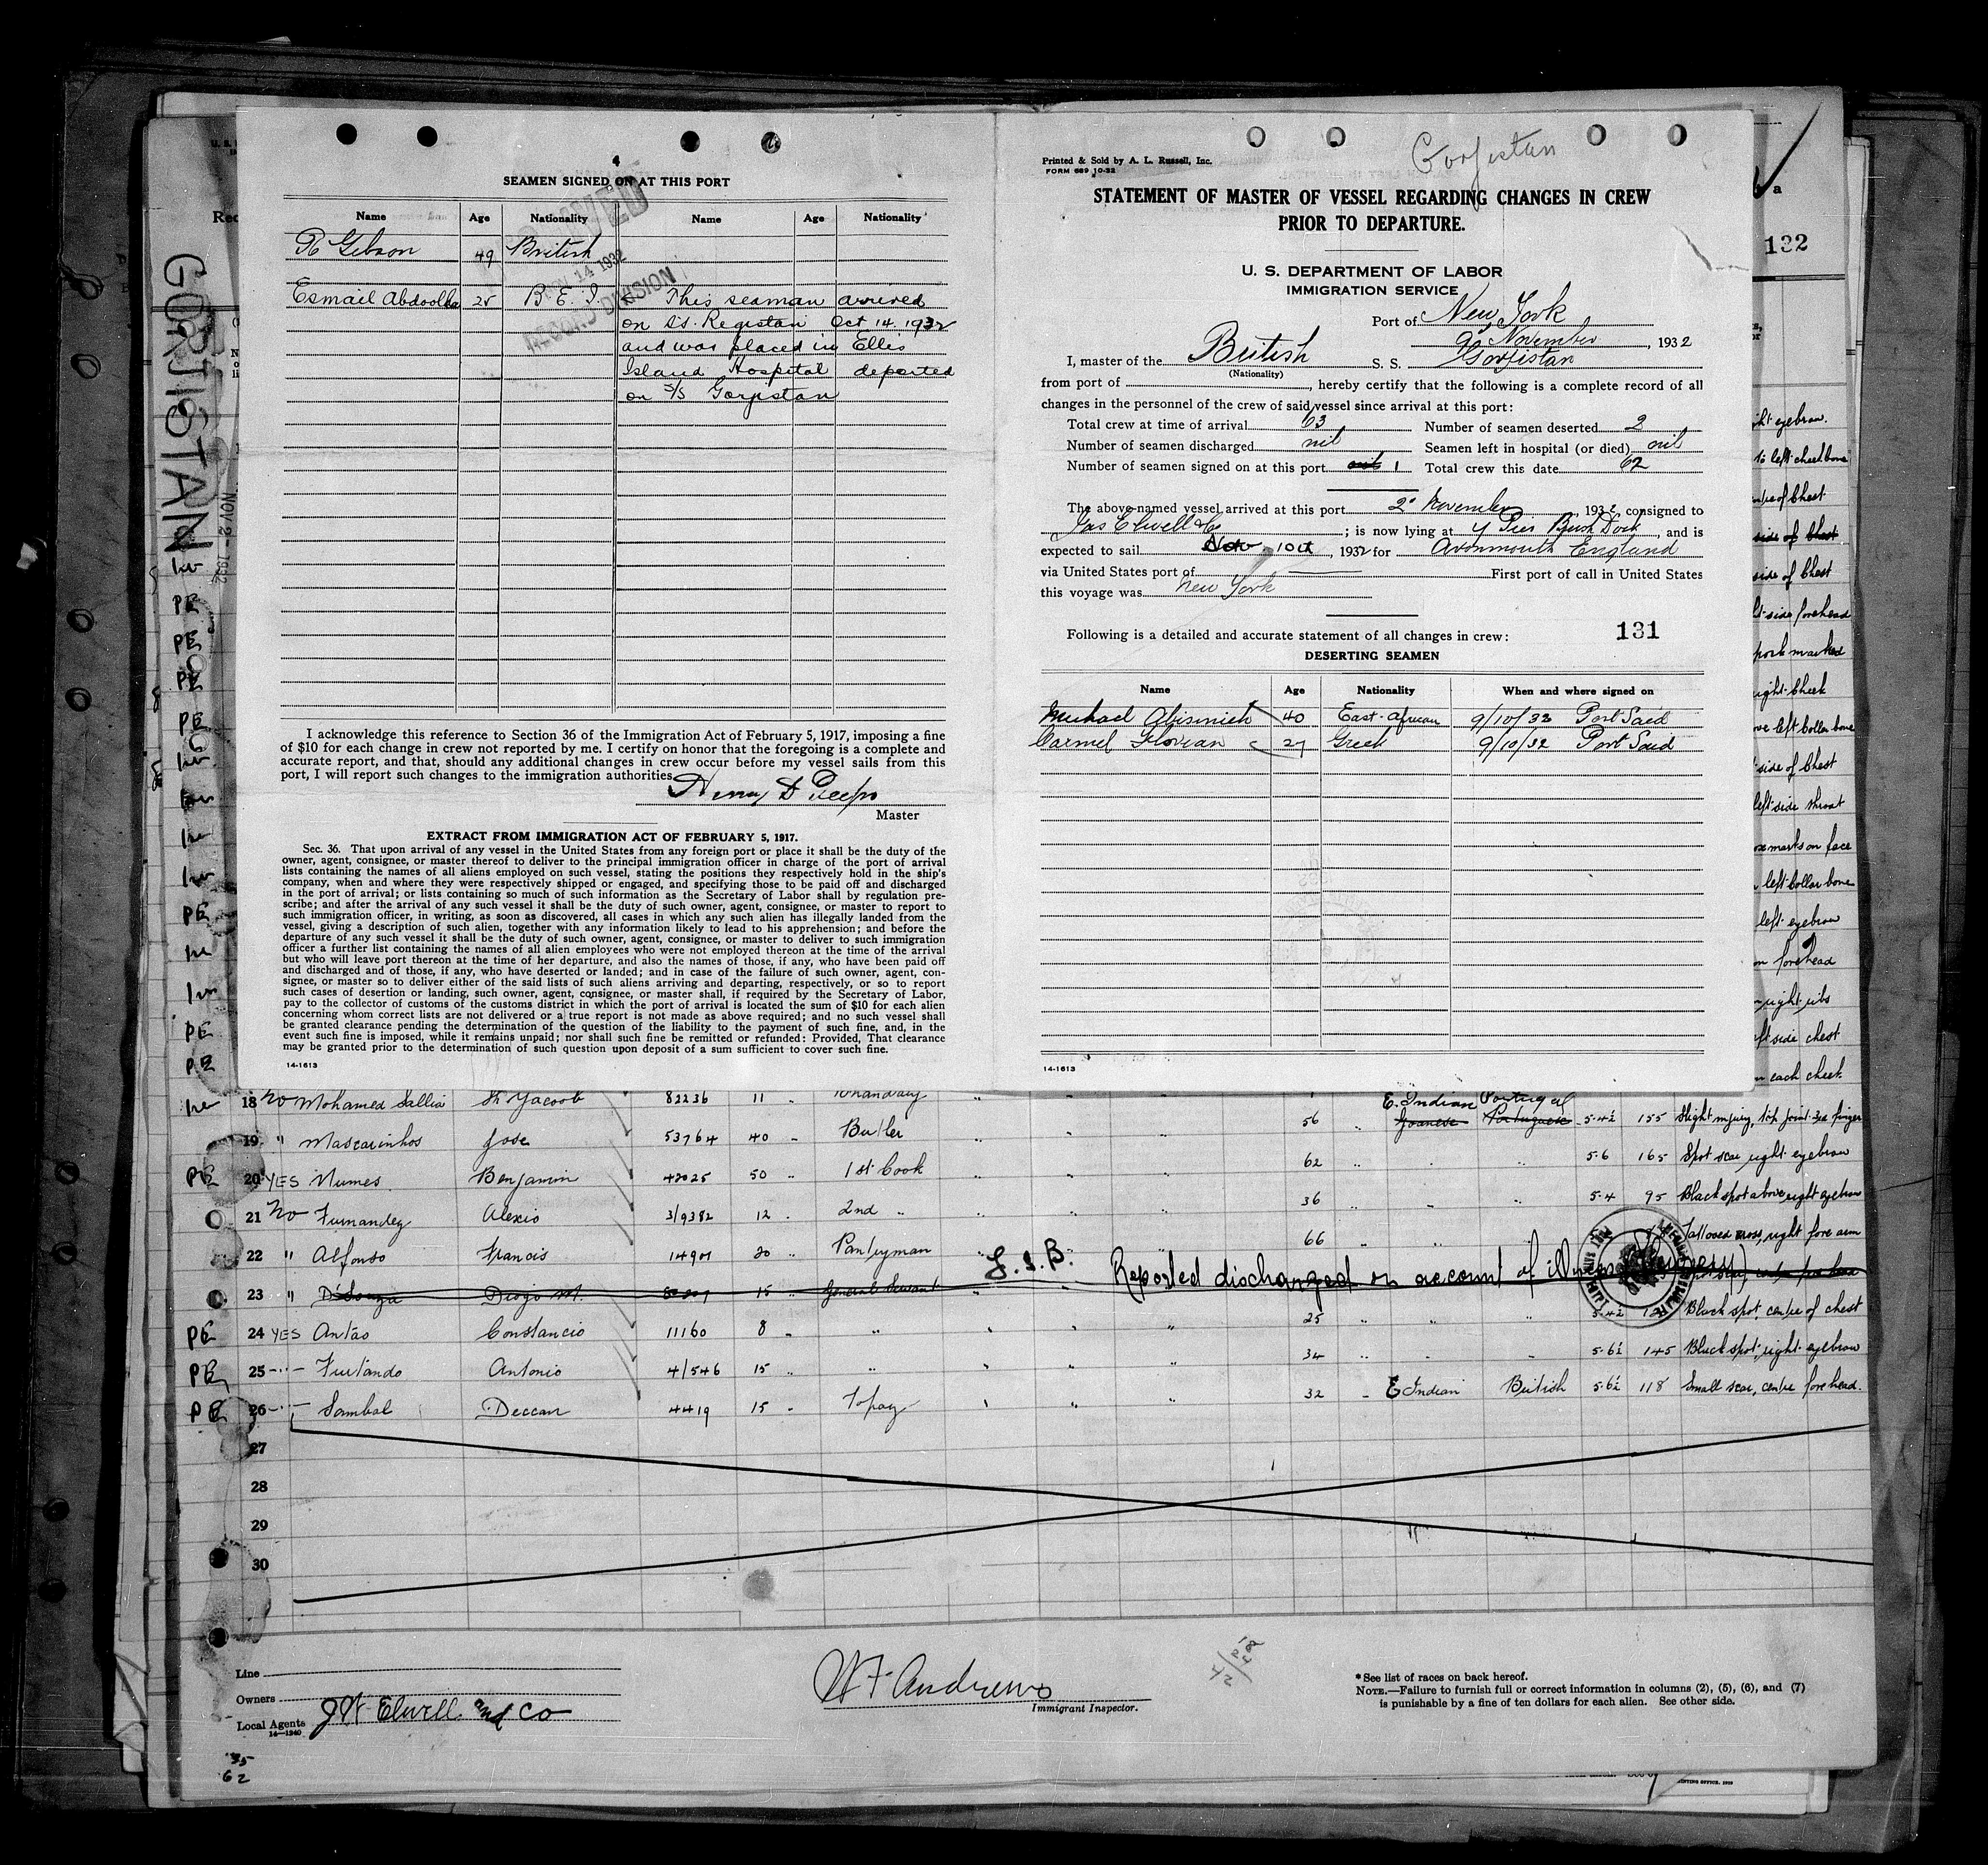 4
SEAMEN SIGNED ON AT THIS PORT
Name Age Nationality Name Age Nationality
R Gibson 49 British
Esmail Abdoolla 25 B E I. This seaman arrived
on S.S. Registan Oct 14. 1932
and was placed in Ellis
Island Hospital deported
on S/S Gorjistan
NOV 14 1932
RECORD DIVISION
I acknowledge this reference to Section 36 of the Immigration Act of February 5, 1917, imposing a fine
of $10 for each change in crew not reported by me. I certify on honor that the foregoing is a complete and
accurate report, and that, should any additional changes in crew occur before my vessel sails from this
port, I will report such changes to the immigration authorities.
Master
EXTRACT FROM IMMIGRATION ACT OF FEBRUARY 5, 1917.
Sec. 36. That upon arrival of any vessel in the United States from any foreign port or place it shall be the duty of the
owner, agent, consignee, or master thereof to deliver to the principal immigration officer in charge of the port of arrival
lists containing the names of all aliens employed on such vessel, stating the positions they respectively hold in the ship's
company, when and where they were respectively shipped or engaged, and specifying those to be paid off and discharged
in the port of arrival; or lists containing so much of such information as the Secretary of Labor shall by regulation pre-
scribe; and after the arrival of any such vessel it shall be the duty of such owner, agent, consignee, or master to report to
such immigration officer, in writing, as soon as discovered, all cases in which any such alien has illegally landed from the
vessel, giving a description of such alien, together with any information likely to lead to his apprehension; and before the
departure of any such vessel it shall be the duty of such owner, agent, consignee, or master to deliver to such immigration
officer a further list containing the names of all alien employees who were not employed thereon at the time of the arrival
but who will leave port thereon at the time of her departure, and also the names of those, if any, who have been paid off
and discharged and of those, if any, who have deserted or landed; and in case of the failure of such owner, agent, con-
signee, or master so to deliver either of the said lists of such aliens arriving and departing, respectively, or so to report
such cases of desertion or landing, such owner, agent, consignee, or master shall, if required by the Secretary of Labor,
pay to the collector of customs of the customs district in which the port of arrival is located the sum of $10 for each alien
concerning whom correct lists are not delivered or a true report is not made as above required; and no such vessel shall
be granted clearance pending the determination of the question of the liability to the payment of such fine, and, in the
event such fine is imposed, while it remains unpaid; nor shall such fine be remitted or refunded: Provided, That clearance
may be granted prior to the determination of such question upon deposit of a sum sufficient to cover such fine.
14-1613
Gorjistan
Printed & Sold by A. L. Russell, Inc.
FORM 689 10-32
STATEMENT OF MASTER OF VESSEL REGARDING CHANGES IN CREW
PRIOR TO DEPARTURE.
U. S. DEPARTMENT OF LABOR
IMMIGRATION SERVICE
Port of New York
9th November, 1932
I, master of the British S. S. Gorjistan
(Nationality)
from port of , hereby certify that the following is a complete record of all
changes in the personnel of the crew of said vessel since arrival at this port:
Total crew at time of arrival 63 Number of seamen deserted 2
Number of seamen discharged nil Seamen left in hospital (or died) nil
Number of seamen signed on at this port nil 1 Total crew this date 62
The above-named vessel arrived at this port 2nd November, 1932, consigned to
Jas Elwell & Co ; is now lying at 4 Pier Bush Dock, and is
expected to sail 10th, 1932 for Avonmouth England
via United States port of First port of call in United States
this voyage was New York
Following is a detailed and accurate statement of all changes in crew: 131
DESERTING SEAMEN
Name Age Nationality When and where signed on
Michael Abisinich 40 East-african 9/10/32 Port Said
Carmel Florian 27 Greek 9/10/32 Port Said
14-1613
132
GORJISTAN
NOV 2 - 1932
right eyebrow.
to left cheek bone
centre of Chest
side of Chest
side of Chest
left side forehead
pock marked
right Cheek
left collar bone
side of Chest
left side throat
marks on face
left collar bone
left eyebrow
on forehead
right ribs
left side chest
on each cheek
18 No Mohamed Sallia Sk Yacoob 82236 11 Bhandary
19 " Mascarinhos Jose 53764 40 Butler 56 E. Indian Goanese Portugal Portuguese 5-4½ 155 Slight injury, 1st joint 3rd finger
PE 20 YES Nunes Benjamin 42025 50 1st Cook 62 5.6 165 Spot scar, right eyebrow
21 No Fernandez Alexio 3/9382 12 2nd " 36 5.4 95 Black spot above right eyebrow
22 " Alfonso Francis 14901 20 Pantryman 66 Tattooed cross, right fore arm
23 " D'Souza Diogo M. 15 General Servant Reported discharged on account of illness
PE 24 YES Antao Constancio 11160 8 " 25 5.4½ Black spot, centre of chest
PE 25 Furtando Antonio 4/546 15 " 34 5.6½ 145 Black spot, right eyebrow
PE 26 Sambal Deccan 4419 15 Topaz 32 E Indian British 5.6½ 118 Small scar, centre forehead.
27
28
29
30
Line
Owners
Local Agents J W Elwell and Co
14-1240
W F Andrews
Immigrant Inspector.
* See list of races on back hereof.
NOTE.—Failure to furnish full or correct information in columns (2), (5), (6), and (7)
is punishable by a fine of ten dollars for each alien. See other side.
35
62